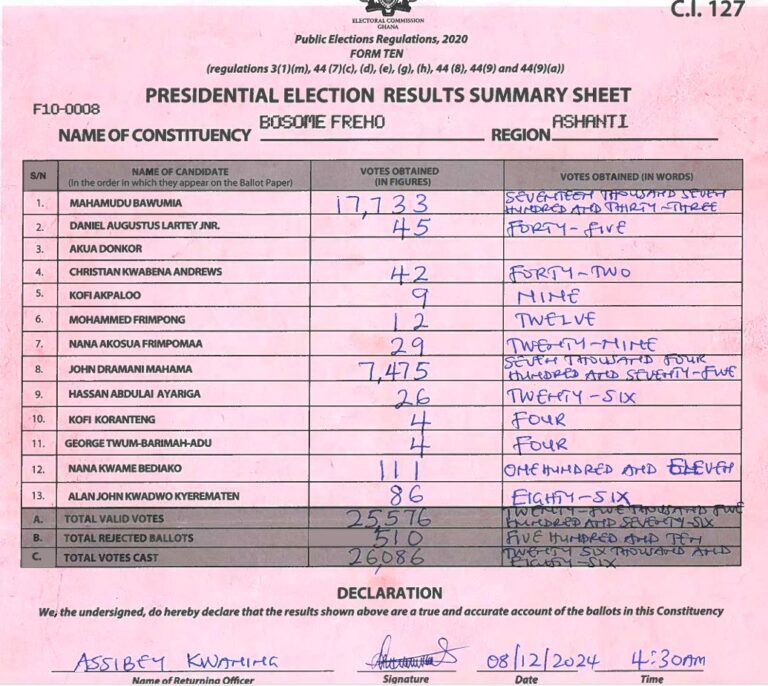 C.I. 127
ELECTORAL COMMISSION
GHANA
Public Elections Regulations, 2020
FORM TEN
(regulations 3(1)(m), 44 (7)(c), (d), (e), (g), (h), 44 (8), 44(9) and 44(9)(a))
PRESIDENTIAL ELECTION RESULTS SUMMARY SHEET
F10-0008
NAME OF CONSTITUENCY BOSOME FREHO REGION ASHANTI
S/N NAME OF CANDIDATE (In the order in which they appear on the Ballot Paper) VOTES OBTAINED (IN FIGURES) VOTES OBTAINED (IN WORDS)
1. MAHAMUDU BAWUMIA 17,733 SEVENTEEN THOUSAND SEVEN HUNDRED AND THIRTY-THREE
2. DANIEL AUGUSTUS LARTEY JNR. 45 FORTY-FIVE
3. AKUA DONKOR
4. CHRISTIAN KWABENA ANDREWS 42 FORTY-TWO
5. KOFI AKPALOO 9 NINE
6. MOHAMMED FRIMPONG 12 TWELVE
7. NANA AKOSUA FRIMPOMAA 29 TWENTY-NINE
8. JOHN DRAMANI MAHAMA 7,475 SEVEN THOUSAND FOUR HUNDRED AND SEVENTY-FIVE
9. HASSAN ABDULAI AYARIGA 26 TWENTY-SIX
10. KOFI KORANTENG 4 FOUR
11. GEORGE TWUM-BARIMAH-ADU 4 FOUR
12. NANA KWAME BEDIAKO 111 ONE HUNDRED AND ELEVEN
13. ALAN JOHN KWADWO KYEREMATEN 86 EIGHTY-SIX
A. TOTAL VALID VOTES 25,576 TWENTY-FIVE THOUSAND FIVE HUNDRED AND SEVENTY-SIX
B. TOTAL REJECTED BALLOTS 510 FIVE HUNDRED AND TEN
C. TOTAL VOTES CAST 26,086 TWENTY SIX THOUSAND AND EIGHTY-SIX
DECLARATION
We, the undersigned, do hereby declare that the results shown above are a true and accurate account of the ballots in this Constituency
ASSIBEY KWAMING 08/12/2024 4:30AM
Name of Returning Officer Signature Date Time